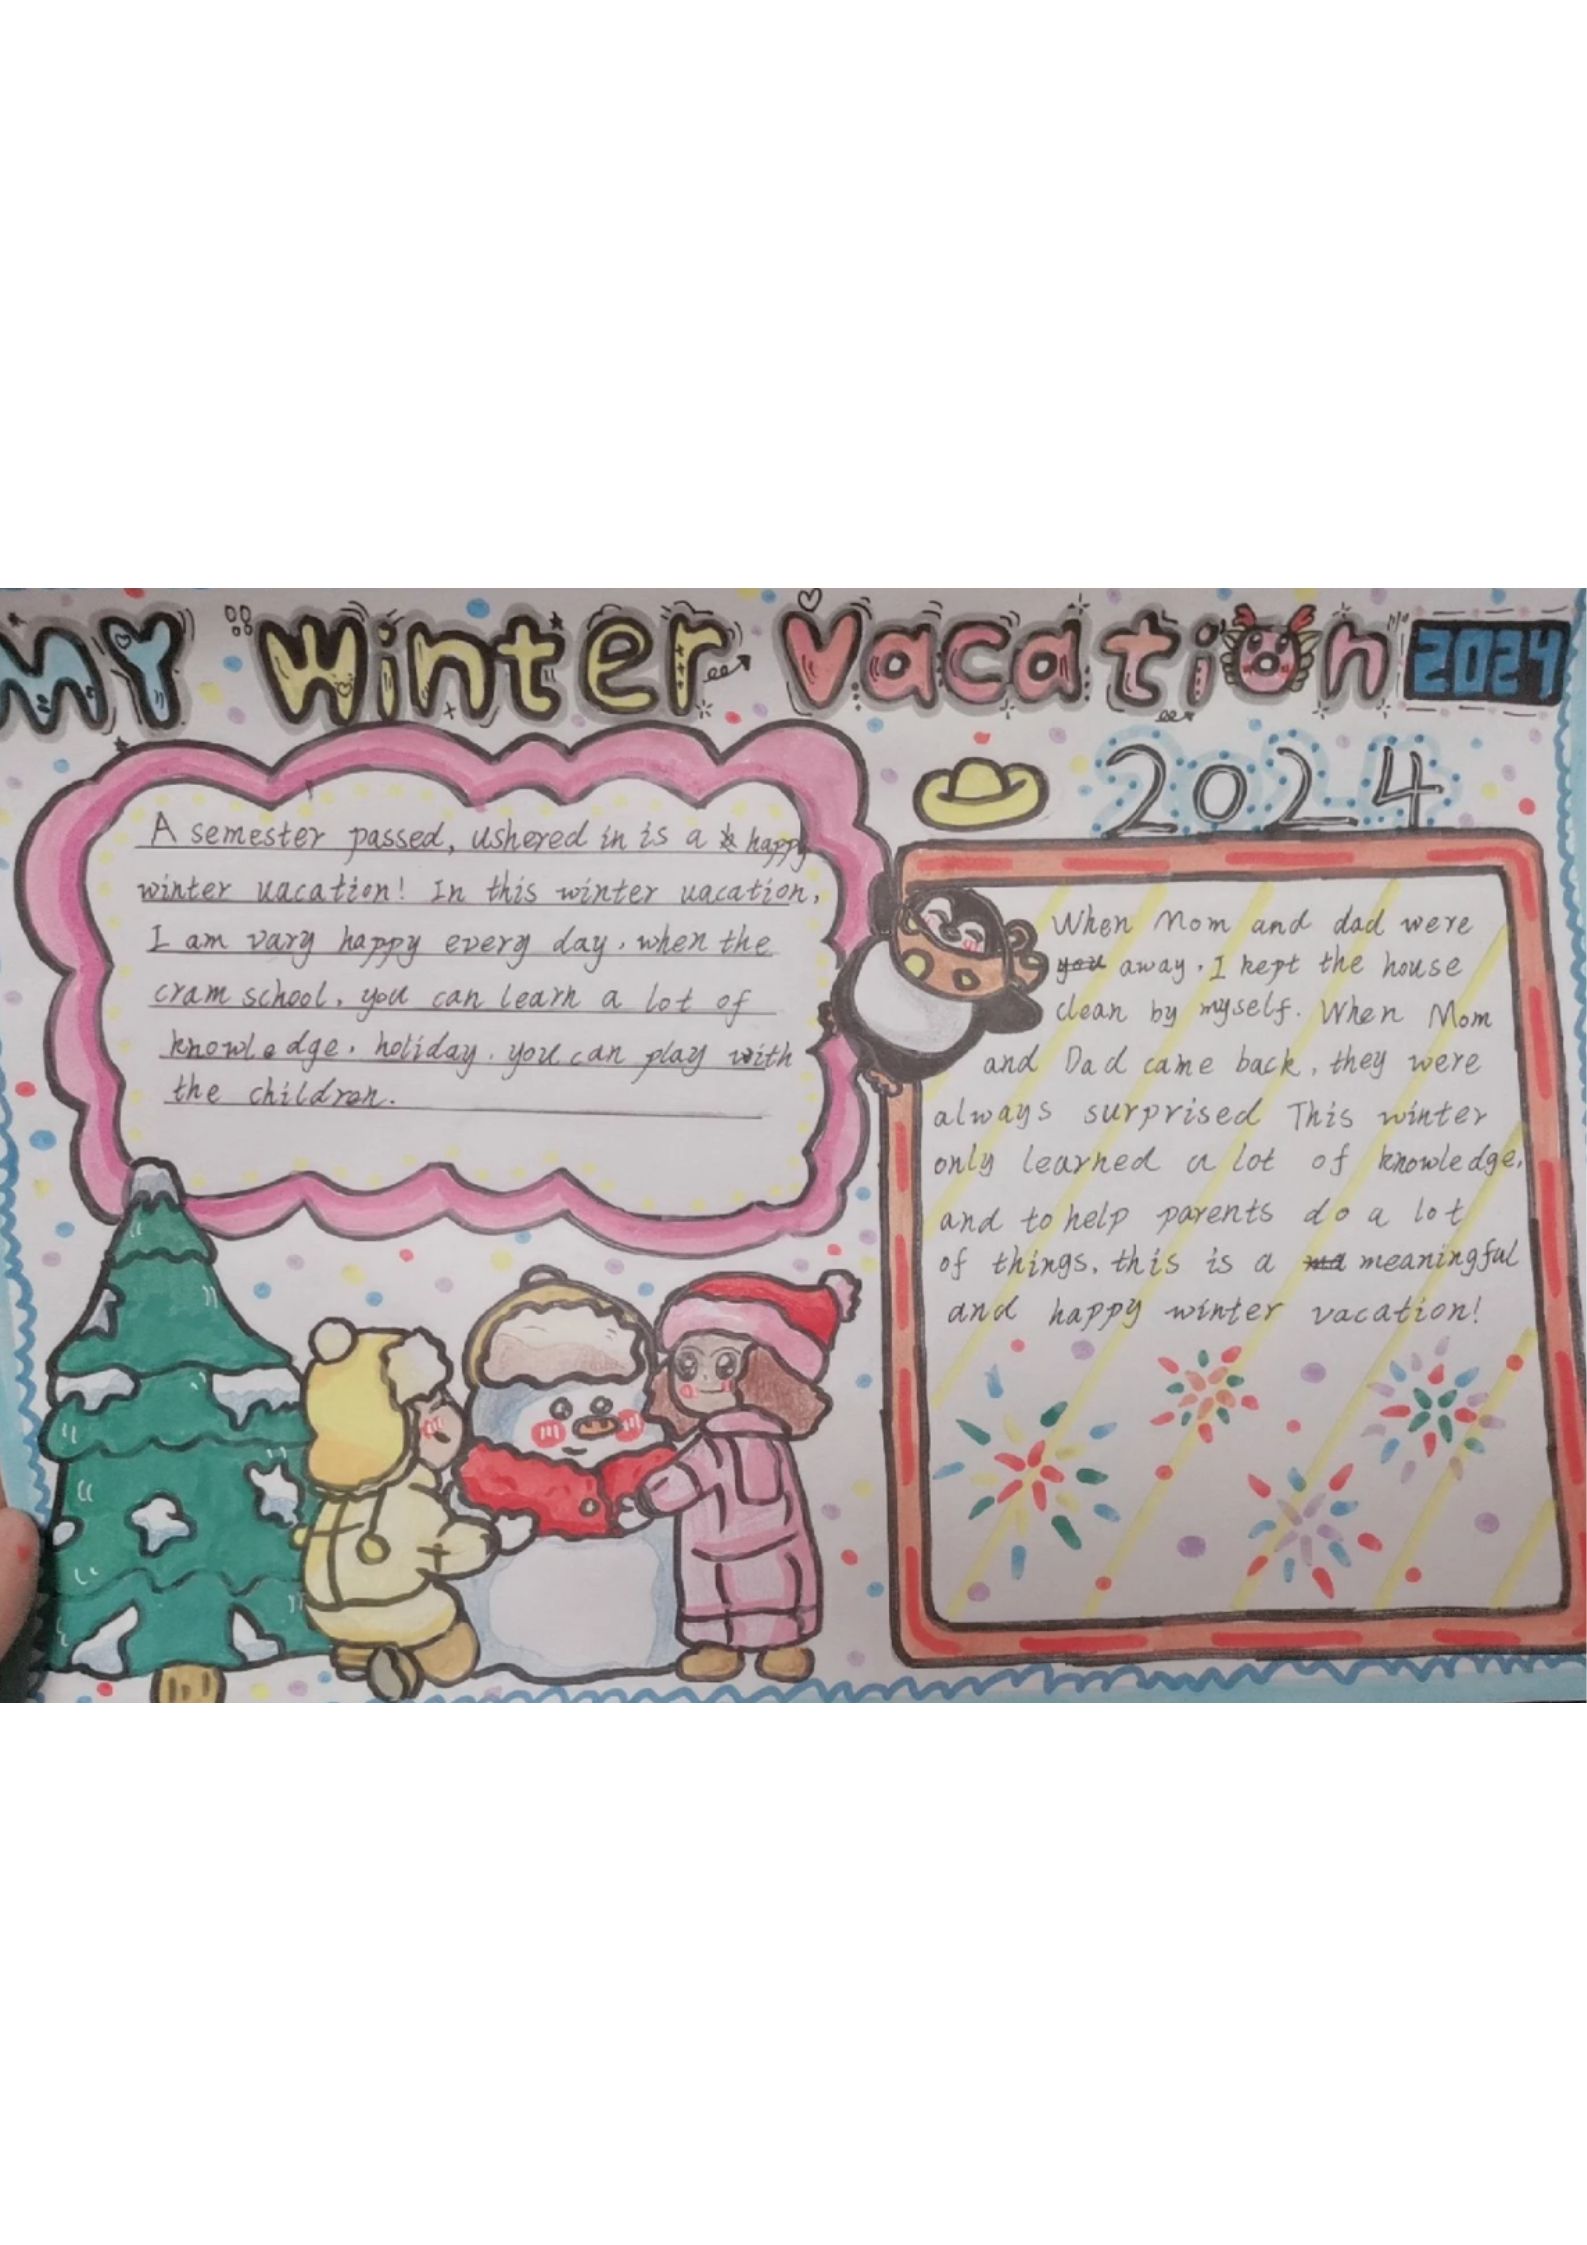 MY winter vacation 2024
2024
A semester passed, ushered in is a happy
winter vacation! In this winter vacation,
I am vary happy every day. when the
cram school, you can learn a lot of
knowledge. holiday. you can play with
the children.
When Mom and dad were
you away. I kept the house
clean by myself. When Mom
and Dad came back, they were
always surprised This winter
only learned a lot of knowledge,
and to help parents do a lot
of things. this is a ma meaningful
and happy winter vacation!